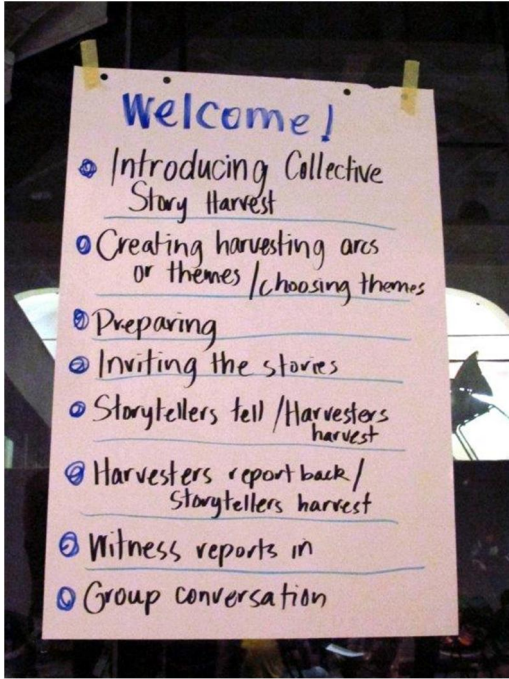 Welcome!
Introducing Collective
Story Harvest
Creating harvesting arcs
or themes / choosing themes
Preparing
Inviting the stories
Storytellers tell / Harvesters
harvest
Harvesters report back /
Storytellers harvest
Witness reports in
Group conversation